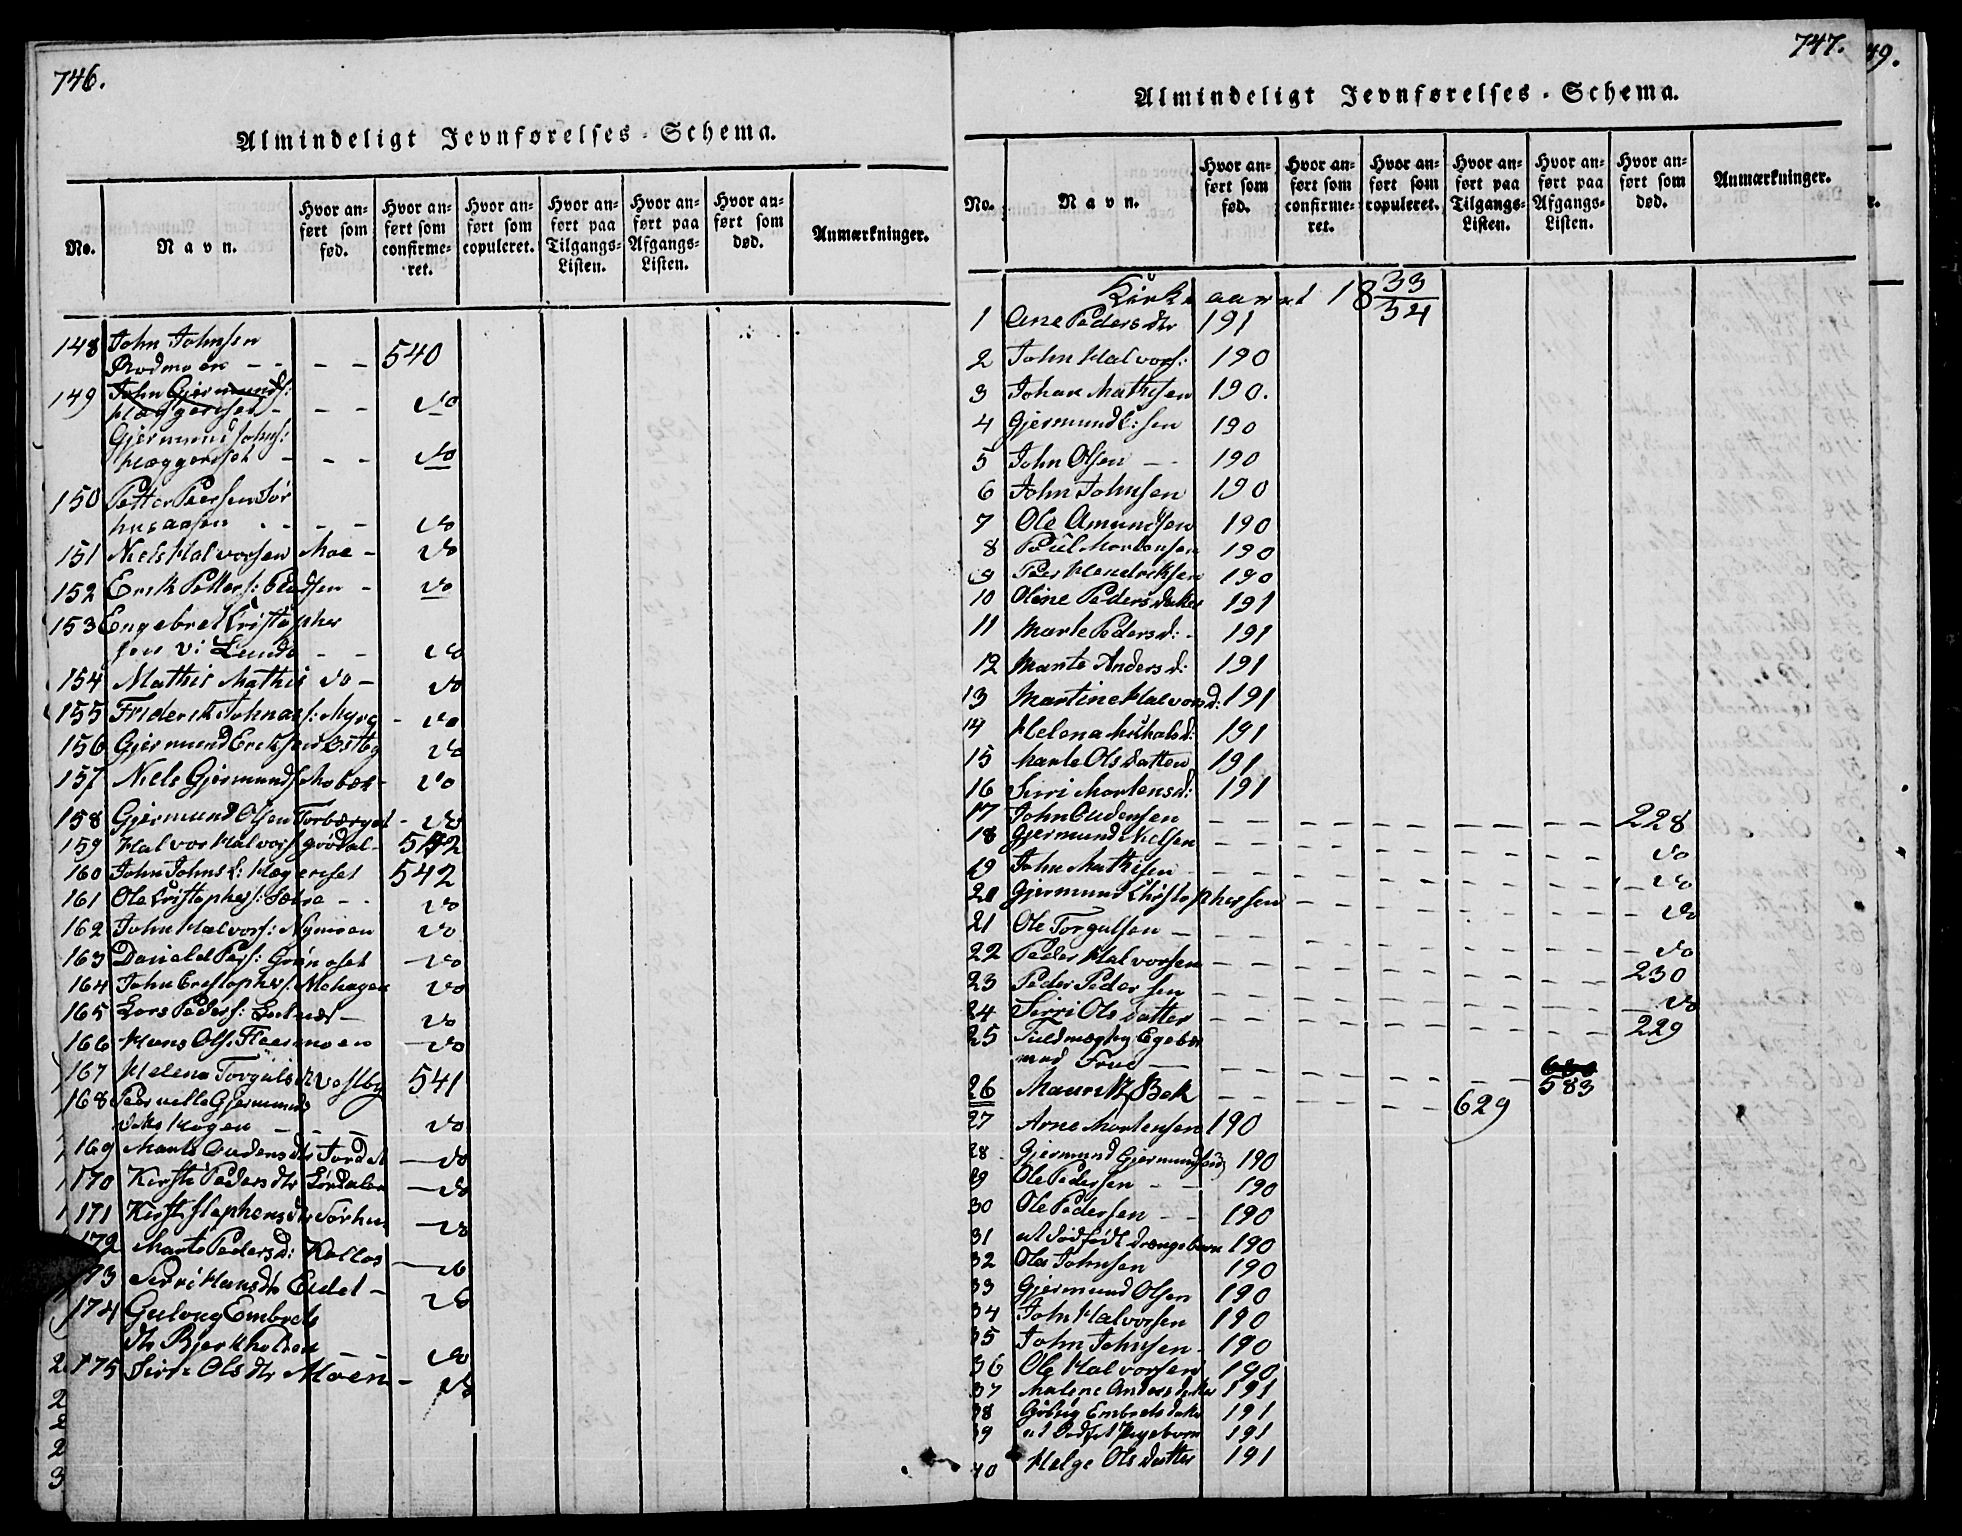 746.
Almindeligt Jevnførelses-Schema.
No. Navn. Hvor anført som fød. Hvor anført som confirmeret. Hvor anført som copuleret. Hvor anført paa Tilgangs-Listen. Hvor anført paa Afgangs-Listen. Hvor anført som død. Anmærkninger.
148 John Johnsen
Rodmoen - - - - 540
149 John Gjermunds:
Hæggeriset - - - do
Gjermund Johns:
Hæggeriset - - - do
150 Petter Peersen Sør
husaasen - - - - do
151 Niels Halvorsen Moe - do
152 Erik Petters: - do
153 Engebret Kristopher
sen vi Lunde - - do
154 Mathis Mathis do - do
155 Friderik Johnas: Myrg - do
156 Gjermund Eriksen Østby do
157 Niels Gjermunds Mobæk - do
158 Gjermund Olsen Torbærget - do
159 Halvor Halvors grødal - 542
160 John Johns: Hægeriset 542
161 Ole Cristophers: Sætre - - do
162 John Halvors: Nymoen do
163 Daniel Pers: Grønoset - do
164 John Crestophers: Mohagen do
165 Lars Peders: - do
166 Hans Ols: Flermoen - do
167 Helena Torgulsdtr Vestby 541
168 Peernelle Gjermunds
datter Hagen - - - do
169 Marte Oudensdtr Jordet - do
170 Kirsti Pedersdtr Lørdalen - do
171 Kirsti Stephensdtr Sørhus - do
172 Marte Pedersd: Kollos - do
173 Sirri Hansdtr Eidet - do
174 Guloug Embrets
dtr Bjerkholen - - do
175 Sirri Olsdtr Moen - do
747.
Almindeligt Jevnførelses-Schema.
No. Navn. Hvor anført som fød. Hvor anført som confirmeret. Hvor anført som copuleret. Hvor anført paa Tilgangs-Listen. Hvor anført paa Afgangs-Listen. Hvor anført som død. Anmærkninger.
Kirkeaaret 1833/34
1 Ane Pedersdtr 191
2 John Halvors: 190
3 Johan Mathisen 190.
4 Gjermund E:sen 190
5 John Olsen - - 190
6 John Johnsen 190
7 Ole Amundsen 190
8 Poul Mortensen 190
9 Peer Hendriksen 190
10 Oline Pedersdatter 191
11 Marte Pedersd: - 191
12 Marte Andersd: 191
13 Martine Halvorsd: 191
14 Helena Michelsd: 191
15 Marte Olsdatter 191
16 Sirri Mortensd: 191
17 John Oudensen - - - - - - 228
18 Gjermund Nielsen - - - - - - do
19 John Mathisen - - - - - - do
20 Gjermund Christophersen - - - - - do
21 Ole Torgulsen - - - - - - do
22 Peder Halvorsen - - - - - - 230
23 Peder Pedersen - - - - - - do
24 Sirri Olsdatter - - - - - - 229
25 Fuldmægtig Egeberg
med Frue - - - - - - 583
26 Mauritz Bek - - - - 629
27 Arne Mortensen 190
28 Gjermund Gjermundsen 190
29 Ole Pedersen - - 190
30 Ole Pedersen - - 190
31 et dødfødt drængebarn 190
32 Ole Johnsen 190
33 Gjermund Olsen 190
34 John Halvorsen 190
35 John Johnsen - 190
36 Ole Halvorsen 190
37 Malene Andersdatter 191
38 Embretsdatter 191
39 et dødfødt Pigebarn 191
40 Helge Olsdatter 191
49.